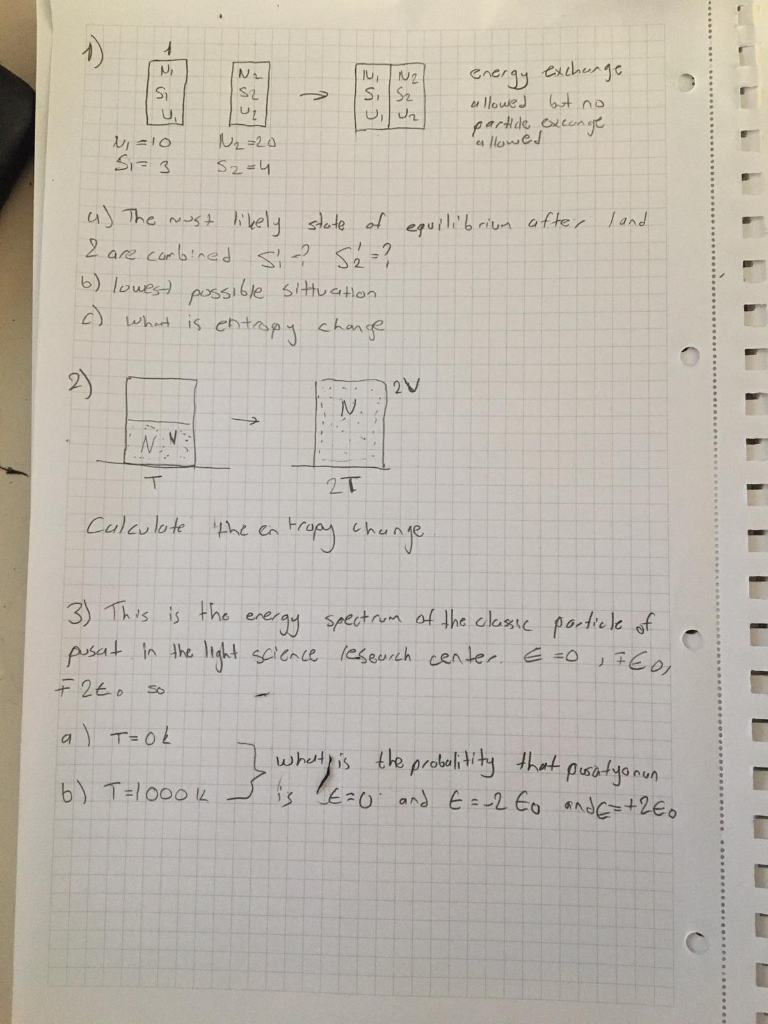 1)
1
N1 N2 N1 N2
S1 S2 → S1 S2
U1 U2 U1 U2
energy exchange
allowed but no
particle excange
allowed
N1 = 10 N2 = 20
S1 = 3 S2 = 4
a) The most likely state of equilibrium after 1 and
2 are combined S1' = ? S2' = ?
b) lowest possible sittuation
c) what is entropy change
2)
N V → N 2V
T 2T
Calculate the entropy change
3) This is the energy spectrum of the classic particle of
pusat in the light science research center. ϵ = 0, ∓ϵ0,
∓2ϵ0 so
a) T = 0k
b) T = 1000 k
what is the probalitity that pusatyonun
is ϵ = 0 and ϵ = -2ϵ0 and ϵ = +2ϵ0